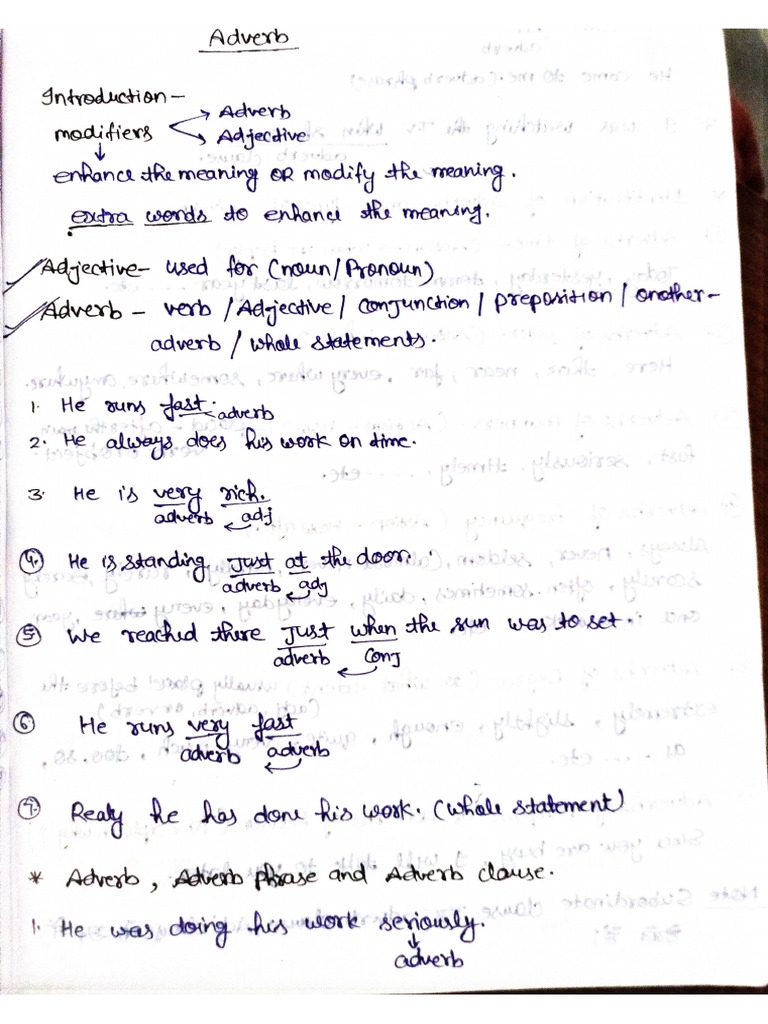 Adverb
Introduction -
modifiers → Adverb
→ Adjective
↓
enhance the meaning OR modify the meaning.
extra words to enhance the meaning.
Adjective - used for (noun/Pronoun)
Adverb - verb / Adjective / conjunction / preposition / another-
adverb / whole statements.
1. He runs fast.
adverb
2. He always does his work on time.
3. He is very rich.
adverb adj
4. He is standing just at the door.
adverb adj
5 We reached there just when the sun was to set.
adverb conj
6 He runs very fast
adverb adverb
7. Realy he has done his work. (whole statement)
* Adverb, Adverb phrase and Adverb clause.
1. He was doing his work seriously.
↓
adverb